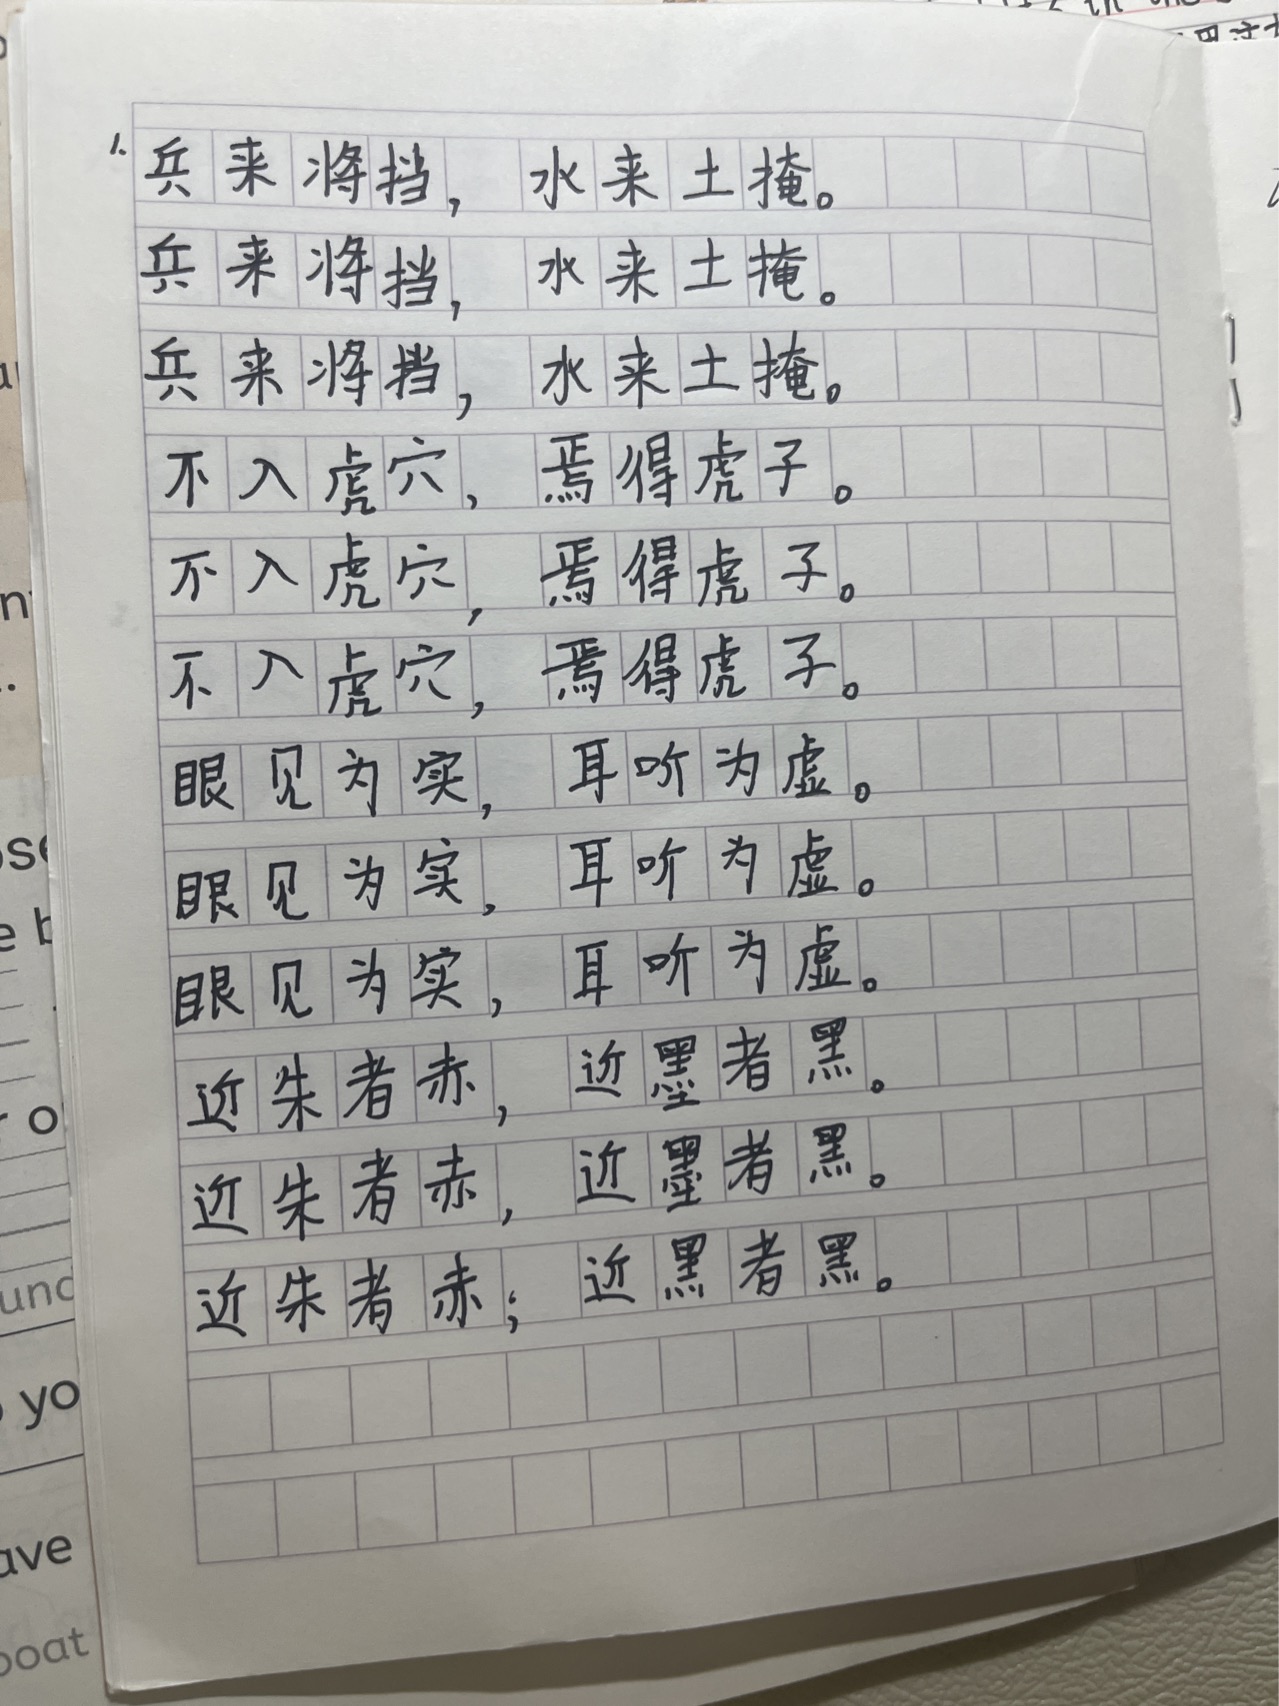 1. 兵来将挡，水来土掩。
兵来将挡，水来土掩。
兵来将挡，水来土掩。
不入虎穴，焉得虎子。
不入虎穴，焉得虎子。
不入虎穴，焉得虎子。
眼见为实，耳听为虚。
眼见为实，耳听为虚。
眼见为实，耳听为虚。
近朱者赤，近墨者黑。
近朱者赤，近墨者黑。
近朱者赤；近黑者黑。
yo
ave
boat